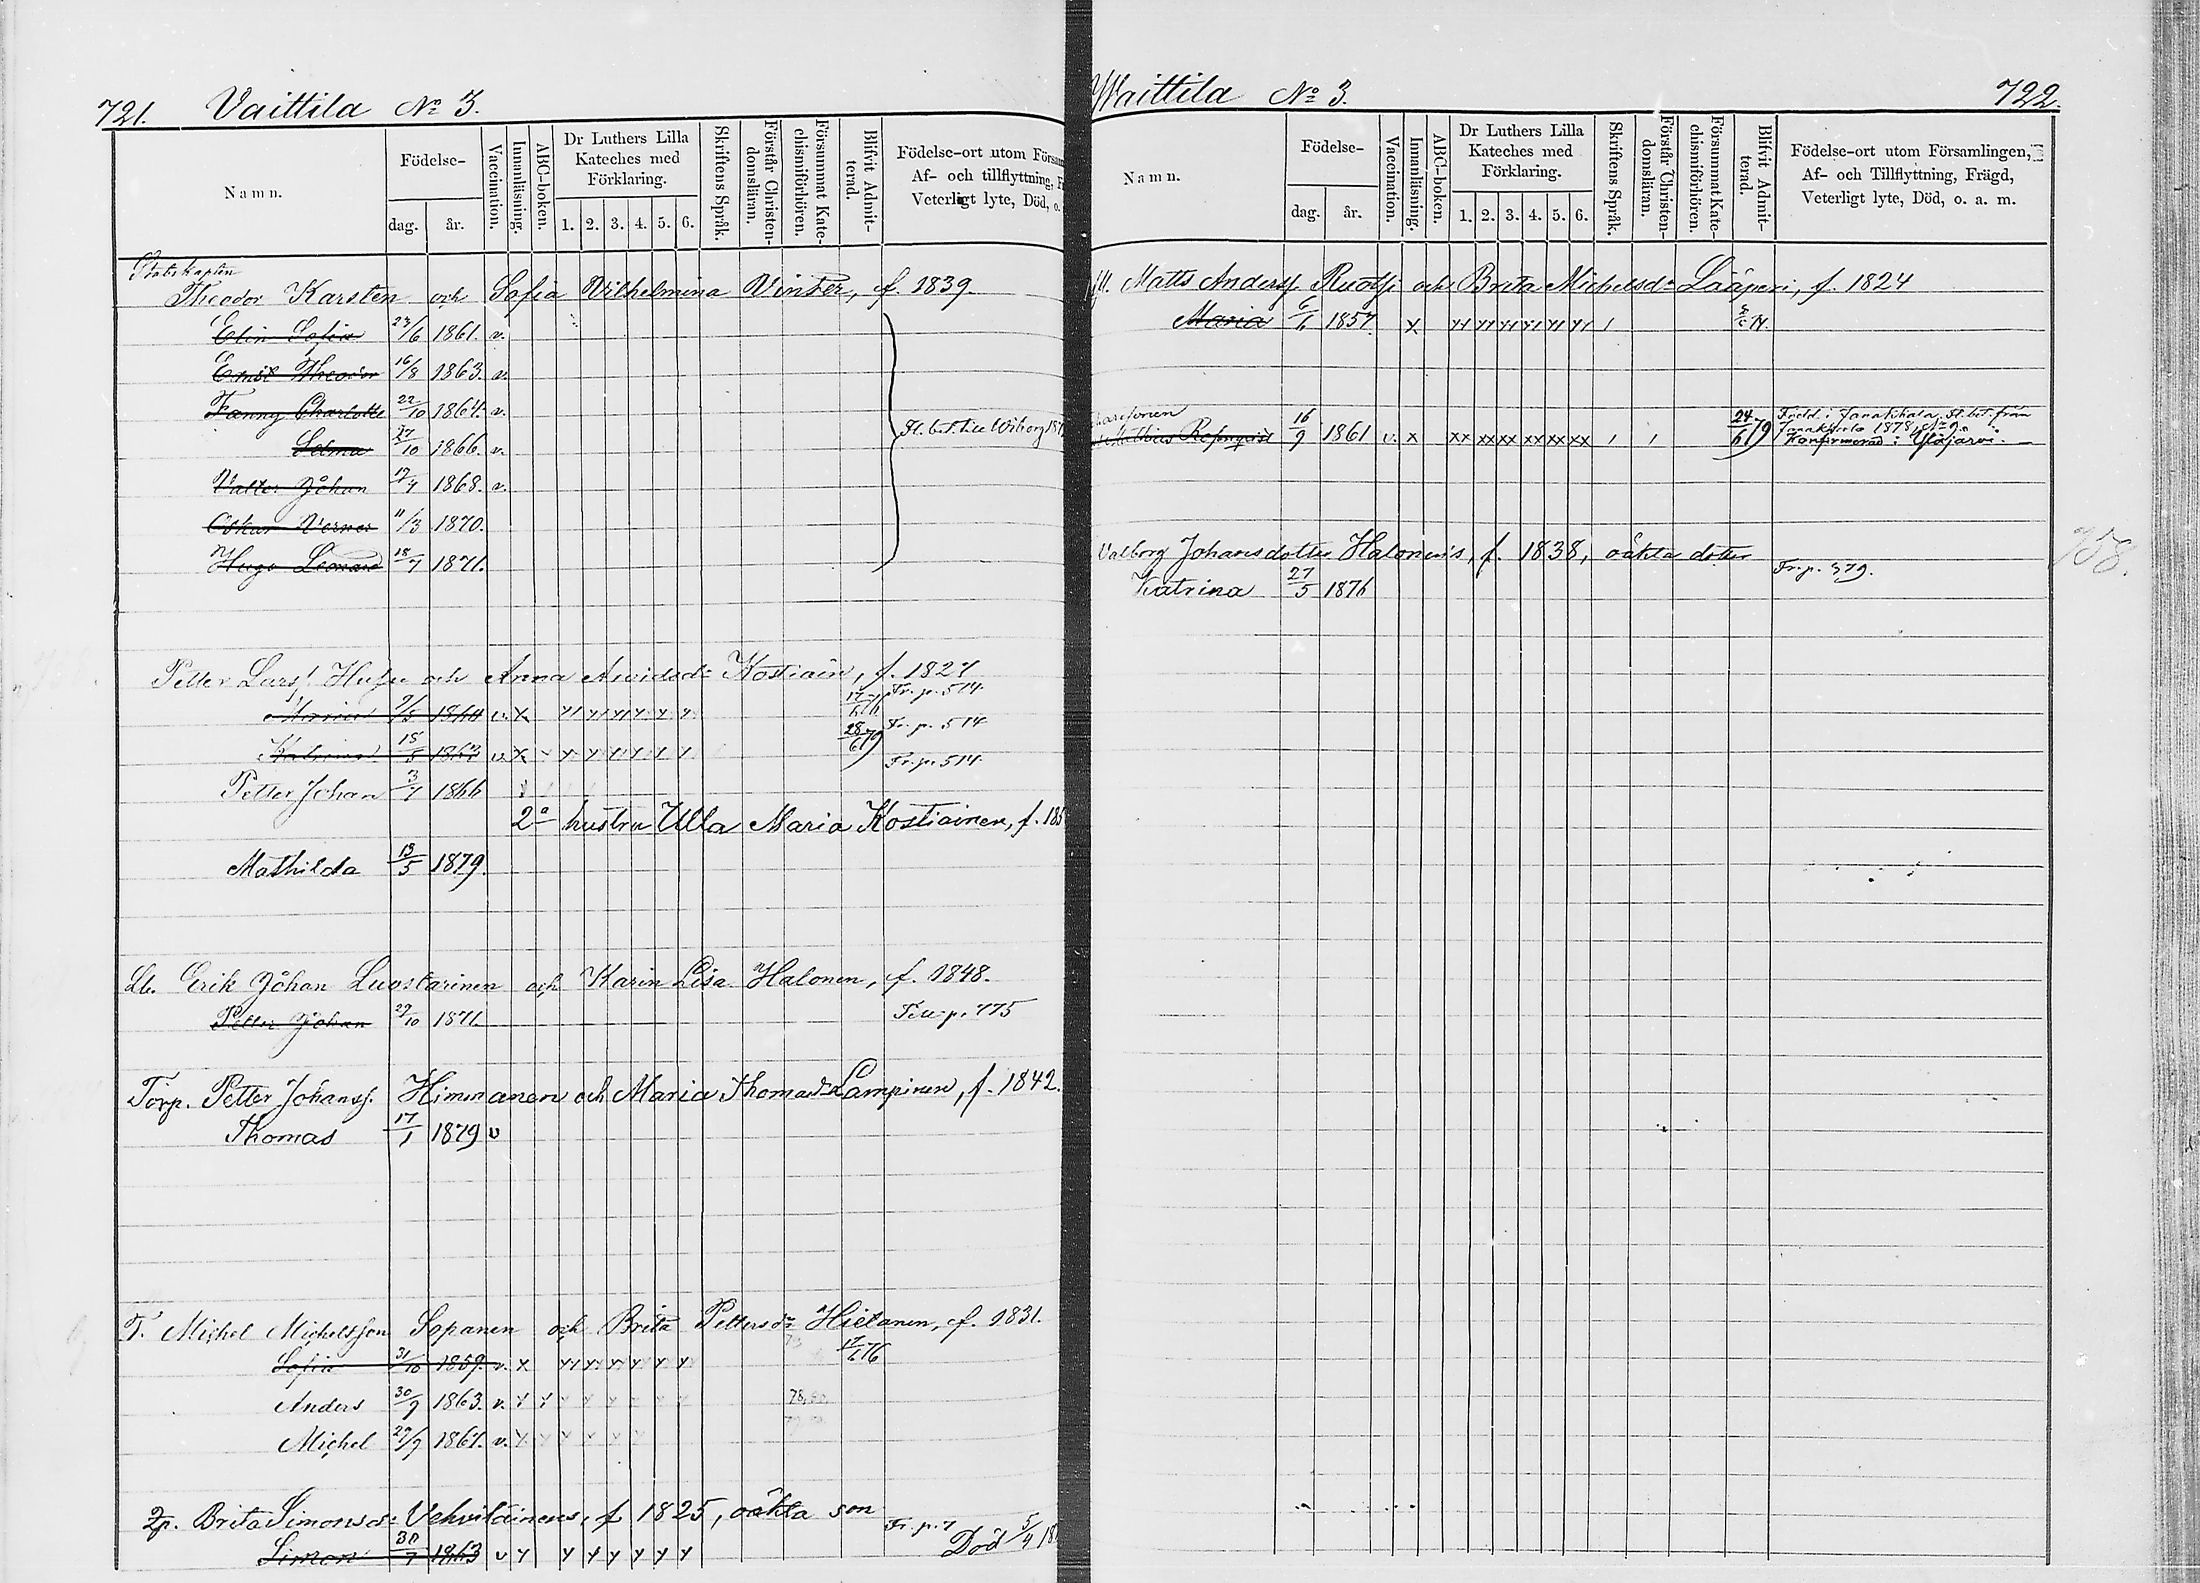 721. Vaittila No 3.
Namn.
Födelse-
dag.
år.
Vaccination.
Innanläsning.
ABC-boken.
Dr Luthers Lilla
Kateches med
Förklaring.
1. 2. 3. 4. 5. 6.
Skriftens Språk.
Förstår Christen-
domsläran.
Försummat Kate-
chismiförhören.
Blifvit Admit-
terad.
Födelse-ort utom Försam
Af- och tillflyttning,
Veterligt lyte, Död, o.
Theodor Karsten och Sofia Wilhelmina Winter, f 1839.
Elin Sofia 23/6 1861. v.
Emil Theodor 16/8 1863. v.
Fanny Charlotte 22/10 1864. v.
Fl. bet. till Wiborg
Selma 27/10 1866. v.
Valter Johan 1868. v.
Oskar Verner 11/3 1870.
Hugo Leonard 18/7 1871.
Petter Hufu och Anna Arvidsdr Kostiain, f. 1827
Fr. p. 514
Fr. p. 514
Katrina 18/5
28/6 79
Fr. p. 514
Petter Johan 3/7 1866
2a hustru Ulla Maria Kostiainen, f.
Mathilda 13/5 1879.
Erik Johan Luostarinen och Karin Lisa Halonen, f. 1848.
Petter Johan 29/10 1871.
p. 775
Torp. Petter Johanss. Himmanen och Maria Thomasdr Lampinen, f. 1842.
Thomas 17/1 1879 v
T. Michel Michelsson Sopanen och Brita Pettersdr Hietanen, f. 1831.
Sofia 31/10 1859. v. x
Anders 30/9 1863. v.
Michel 29/9 1867. v.
Brita Simonsdr Vehviläinens, f 1825, oäkta son
Fr. p. 7
Simon 30/7 1863 v
Död 5/4
Waittila No 3. 722.
Namn.
Födelse-
dag.
år.
Vaccination.
Innanläsning.
ABC-boken.
Dr Luthers Lilla
Kateches med
Förklaring.
1. 2. 3. 4. 5. 6.
Skriftens Språk.
Förstår Christen-
domsläran.
Försummat Kate-
chismiförhören.
Blifvit Admit-
terad.
Födelse-ort utom Församlingen,
Af- och Tillflyttning, Frägd,
Veterligt lyte, Död, o. a. m.
Matts Anderss. Ruotsi och Brita Michelsdr Lääperi, f. 1824
Maria 6/6 1857 x
16/9 1861 v. x xx xx xx xx xx xx
24/6 79
Född i Janakkala. Fl. bet. från
Janakkala 1878, No 9.
Konfirmerad i Ylöjärvi.
Valborg Johansdotter Halonens, f. 1838, oäkta dotter
Fr. p. 379.
Katrina 27/5 1876
758.